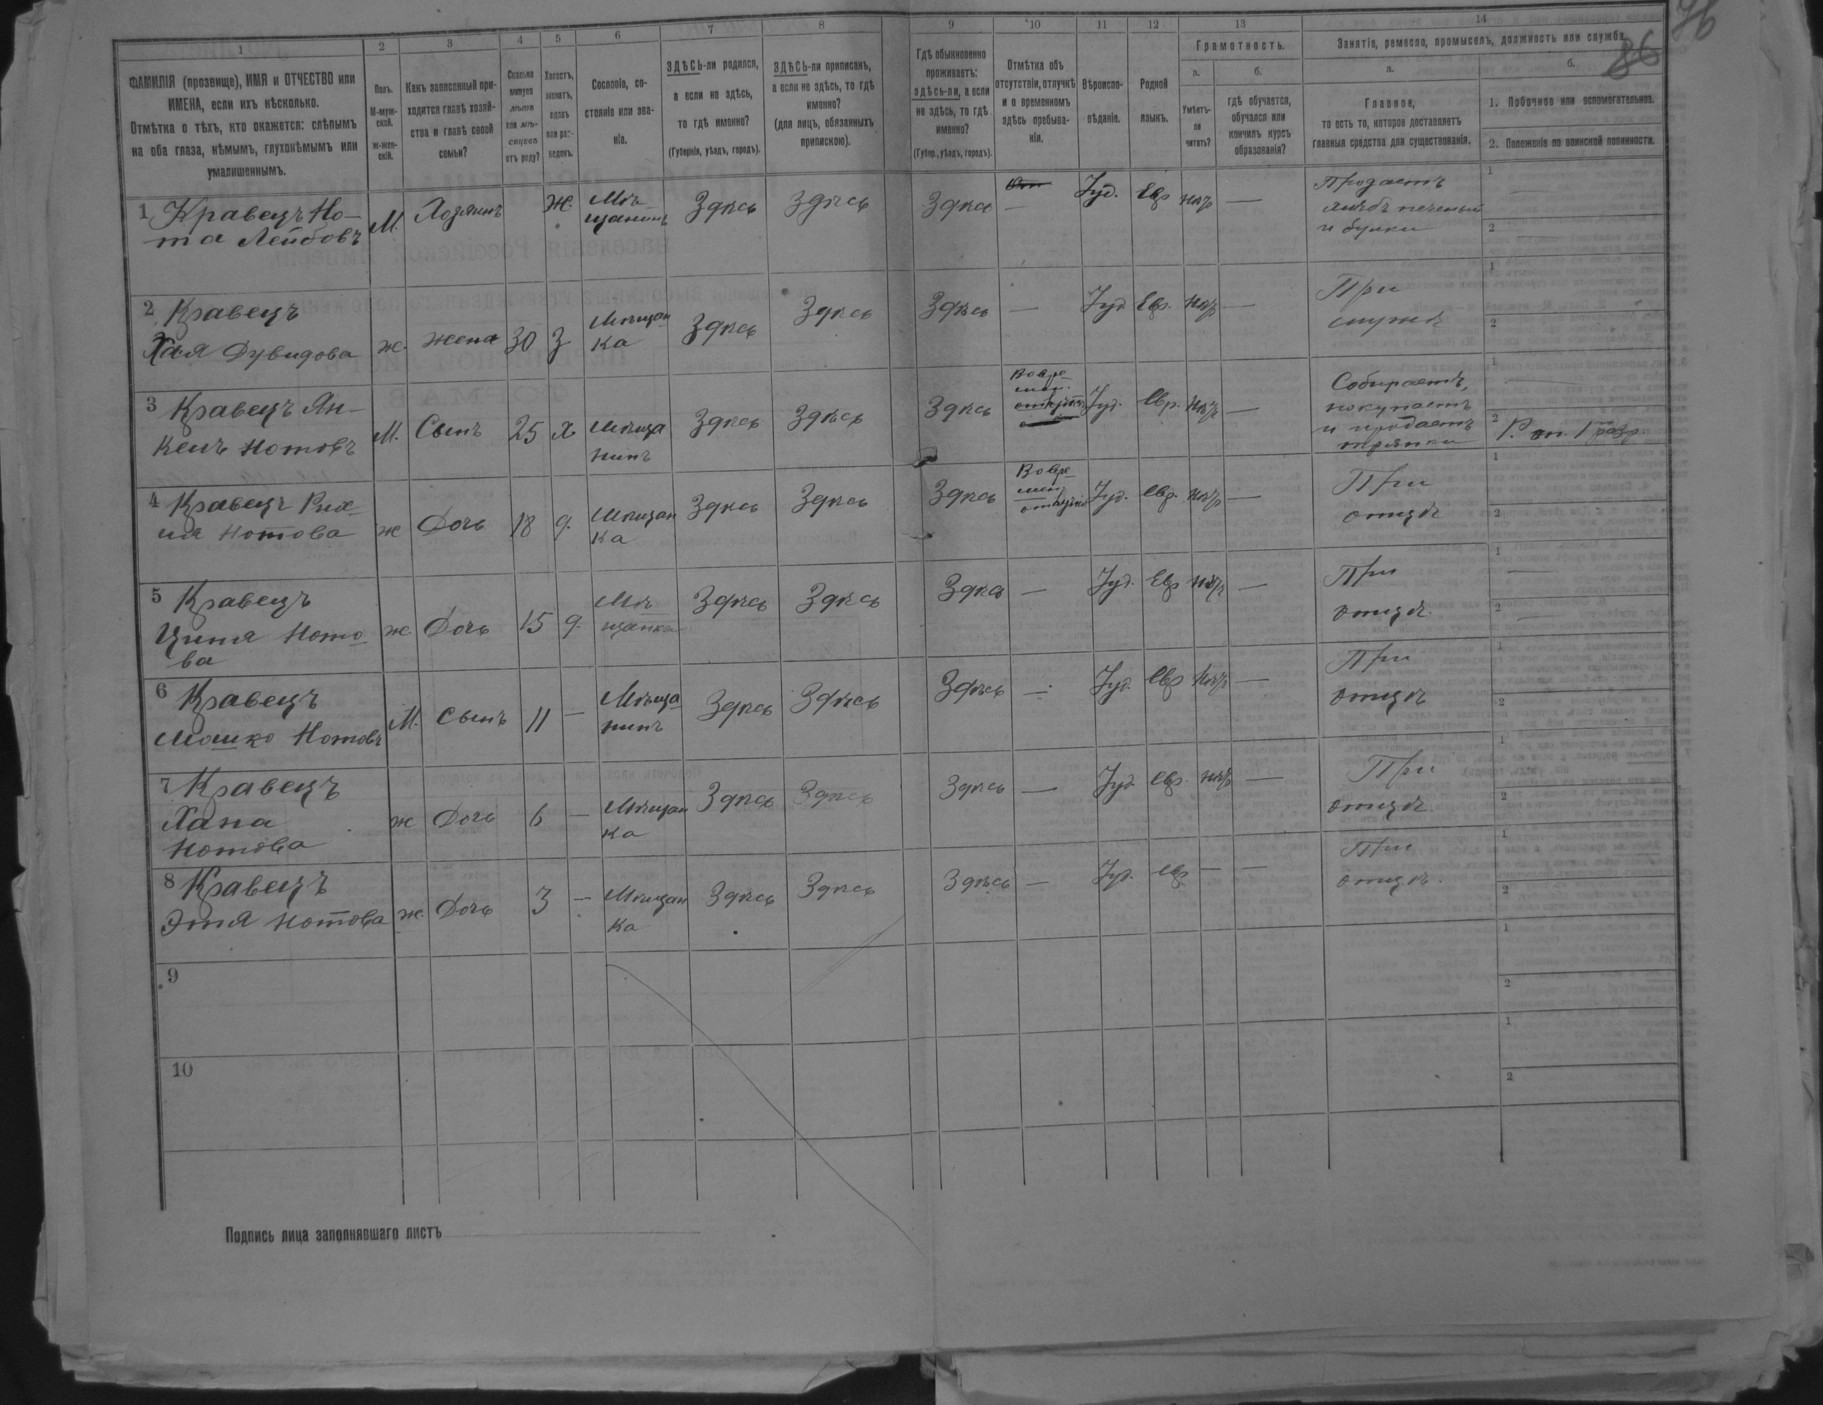 76
86
1
2
3
4
5
6
7
8
9
10
11
12
13
14
ФАМИЛІЯ (прозвище), ИМЯ и ОТЧЕСТВО или
ИМЕНА, если ихъ нѣсколько.
Отмѣтка о тѣхъ, кто окажется: слѣпымъ
на оба глаза, нѣмымъ, глухонѣмымъ или
умалишеннымъ.
Полъ.
М-муж-
ской.
Ж-жен-
скій.
Какъ записанный при-
ходится главѣ хозяй-
ства и главѣ своей
семьи?
Сколько
минуло
лѣтъ
или мѣ-
сяцевъ
отъ роду?
Холостъ,
женатъ,
вдовъ
или раз-
веденъ.
Сословіе, со-
стояніе или зва-
ніе.
ЗДѢСЬ-ли родился,
а если не здѣсь,
то гдѣ именно?
(Губернія, уѣздъ, городъ).
ЗДѢСЬ-ли приписанъ,
а если не здѣсь, то гдѣ
именно?
(для лицъ, обязанныхъ
припискою).
Гдѣ обыкновенно
проживаетъ:
здѣсь-ли, а если
не здѣсь, то гдѣ
именно?
(Губер., уѣздъ, городъ).
Отмѣтка объ
отсутствіи, отлучкѣ
и о временномъ
здѣсь пребыва-
ніи.
Вѣроиспо-
вѣданіе.
Родной
языкъ.
Грамотность.
а.
Умѣетъ-
ли
читать?
б.
гдѣ обучается,
обучался или
кончилъ курсъ
образованія?
Занятіе, ремесло, промыселъ, должность или служба.
а.
Главное,
то есть то, которое доставляетъ
главныя средства для существованія.
б.
1. Побочное или вспомогательное.
2. Положеніе по воинской повинности.
1 Кравецъ Но-
та Лейбовъ
М. Хозяинъ Ж. Мѣ-
щанинъ Здѣсь Здѣсь Здѣсь — Іуд. Евр. нѣтъ —
Продаетъ
хлѣбъ печеный
и булки
2 Кравецъ
Хая Дувидова
ж. жена 30 З Мѣщан
ка Здѣсь Здѣсь Здѣсь — Іуд. Евр. нѣтъ —
При
мужѣ
3 Кравецъ Ян-
кель Нотовъ
М. Сынъ 25 Х Мѣща
нинъ Здѣсь Здѣсь Здѣсь
Іуд. Евр. нѣтъ —
Собираетъ,
покупаетъ
и продаетъ
тряпки
4 Кравецъ
Нотова
ж Дочь 18 д. Мѣщан
ка Здѣсь Здѣсь Здѣсь
Іуд. Евр. нѣтъ —
При
отцѣ
5 Кравецъ
Ното-
ва
ж. Дочь 15 д. Мѣ-
щанка Здѣсь Здѣсь Здѣсь — Іуд. Евр нѣтъ —
При
отцѣ
6 Кравецъ
Мошко Нотовъ
М. Сынъ 11 — Мѣща-
нинъ Здѣсь Здѣсь Здѣсь — Іуд. Евр нѣтъ —
При
отцѣ
7 Кравецъ
Хана
Нотова
ж Дочь 6 — Мѣщан
ка Здѣсь Здѣсь Здѣсь — Іуд Евр. нѣтъ —
При
отцѣ
8 Кравецъ
Этя Нотова
ж. Дочь 3 — Мѣщан
ка Здѣсь Здѣсь Здѣсь — Іуд. Евр — —
При
отцѣ.
9
10
Подпись лица заполнявшаго листъ